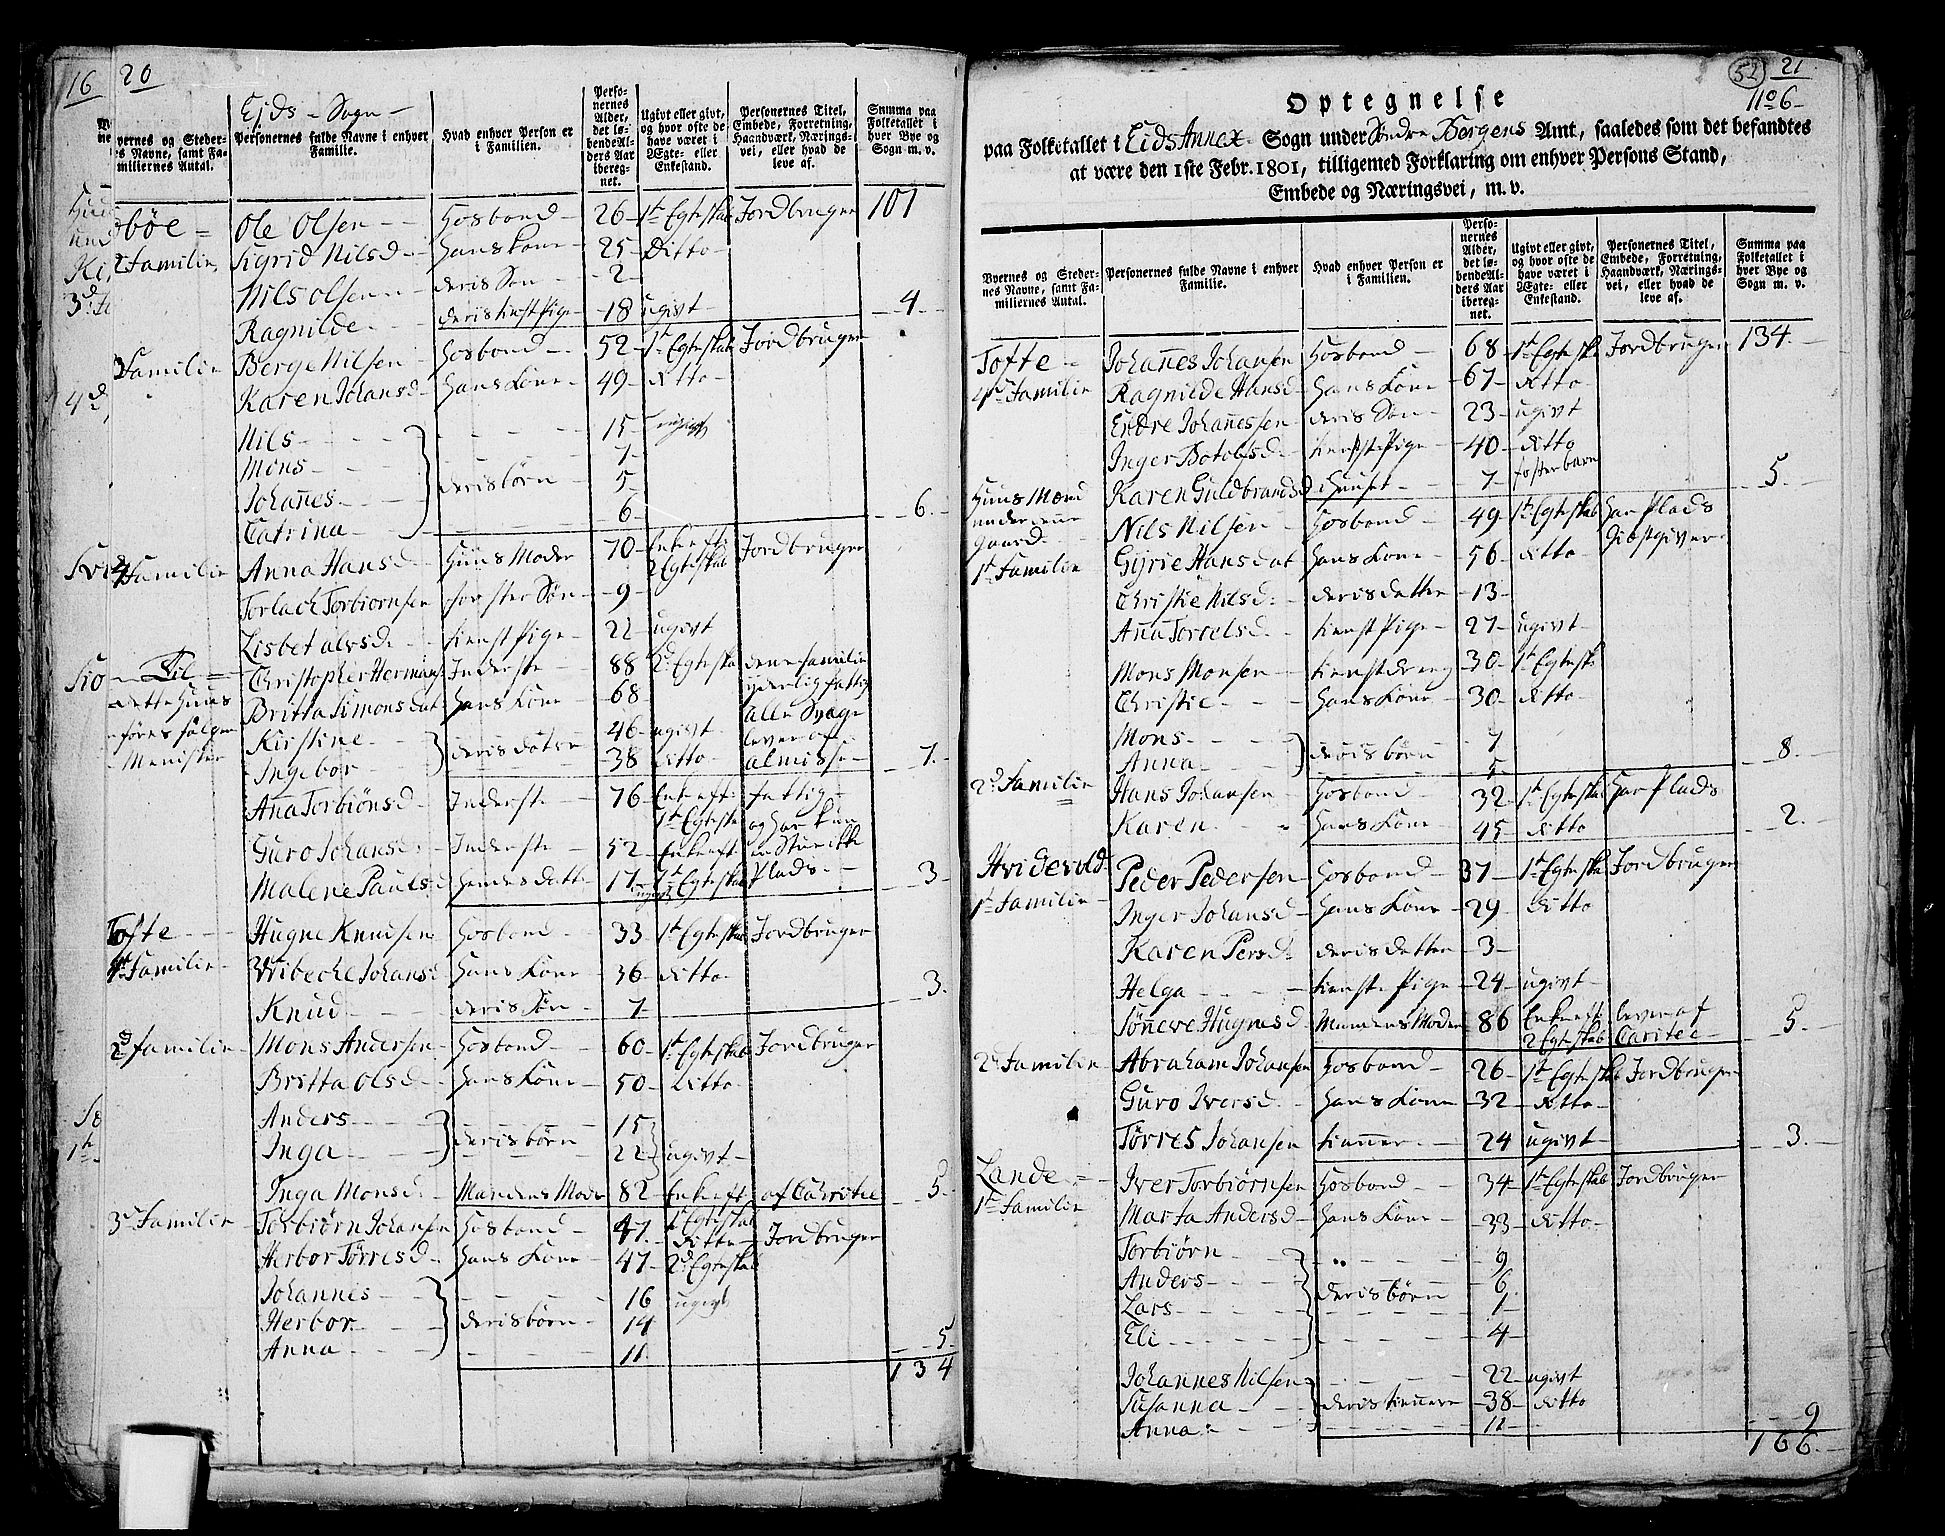 16
20
Ejds - Sogn -
Personernes fulde Navne i enhver Familie.
Hvad enhver Person er i Familien.
Personernes Alder, det løbende Alders Aar iberegnet.
Ugivt eller givt, og hvor ofte de have været i Ægte- eller Enkestand.
Personernes Titel, Embede, Forretning, Haandværk, Næringsvei, eller hvad de leve af.
Summa paa Folketallet i hver Bye og Sogn m. v.
bøe = Ole Olsen Hosbond 26 1te Egteskab Jordbruger 101
2 Familie Sigrid Nilsd Hans Kone 25 Ditto
Nils Olsen deris Søn 2
Ragnilde deris tienst Pige 18 ugivt 4
3 Familie Berge Nilsen Hosbond 52 1te Egteskab Jordbruger
Karen Johansd Hans Kone 49 ditto
Nils 15
Mons 7
Johannes deris børn 5
Catrina 6 6
4 Familie Anna Hansd Huus Moder 70 Enke eft: 2 Egteskab Jordbruger
Torlach Torbiornsen foster Søn 9
Lisbet alvsd tienst Pige 22 ugivt
Christopher Hermans Inderste 88 2d Egteska denne familie
Britta Simonsdat Hans Kone 68 yderlig fattig
Kirstine deris døtre 46 ugivt alle Svage lever af
Ingebor 38 ditto almisse 7
Ana Torbiønsd Inderste 76 Enke eft: 1te Egteska fattig og har kun
Guro Johansd Inderste 52 Enke eft 1te Egteskab en Stue ikke Plads
Malene Paulsd Hendes datter 17 3
Tofte Hugne Knudsen Hosbond 33 1te Egteskab Jordbruger
1te Familie Vibeche Johansd Hans Kone 36 ditto
Knud deris Søn 7 3
2d familie Mons Andersen Hosbond 60 1te Egteskab Jordbruger
Britta Olsd Hans Kone 50 ditto
Anders 15
Inga deris børn 22 ugivt
Inga Monsd Mandens Moder 82 Enke eft af Christie 5
3d Familie Torbiørn Johansen Hosbond 47 Jordbruger
Herbor Tørresd Hans Kone 47 2d Egteskab
Johannes 16 ugivt
Herbor deris børn 14
Anna 11 5
134
52
21
1106
Optegnelse
paa Folketallet i Eids Annex Sogn under Søndre Bergens Amt, saaledes som det befandtes
at være den 1ste Febr. 1801, tilligemed Forklaring om enhver Persons Stand,
Embede og Næringsvei, m. v.
Byernes og Stedernes Navne, samt Familiernes Antal.
Personernes fulde Navne i enhver Familie.
Hvad enhver Person er i Familien.
Personernes Alder, det løbende Alders Aar iberegnet.
Ugivt eller givt, og hvor ofte de have været i Ægte- eller Enkestand.
Personernes Titel, Embede, Forretning, Haandværk, Næringsvei, eller hvad de leve af.
Summa paa Folketallet i hver Bye og Sogn m. v.
Tofte Johannes Johansen Hosbond 68 1te Egteska Jordbruger 134
4d Familie Ragnilde Hansd Hans Kone 67 ditto
Endre Johannessen deris Søn 23 ugivt
Inger Botolfsd tienste Pige 40 ditto
Karen Guldbrandsd i Huuset 7 fosterbarn 5
Huus Mænd under denne Gaard
1te Familie
Nils Nilsen Hosbond 49 1te Egteskab Har Plads
Gyrie Hansdat Hans Kone 56 ditto
Christie Nilsd deris datter 13
Anna Torrelsd tienst Pige 27 ugivt
Mons Monsen tienstdreng 30 1te Egtesk
Christie Hans Kone 30 ditto
Mons 7
Anna deris børn 5 8
2d Familie Hans Johansen Hosbond 32 1te Egteskab Har Plads
Karen Hans Kone 45 ditto 2
Hvidevold Peder Pedersen Hosbond 37 1te Egteska Jordbruger
1te Familie Inger Johansd Hans Kone 29 ditto
Karen Persd deris datter 3
Helga tienste Pige 24 ugivt
Sønneve Hugnesd Mandens Moder 86 Enke eft 2 Egteskab lever af Caritee 5
2d Familie Abraham Johansen Hosbond 26 1te Egteskab Jordbruger
Guro Iversd Hans Kone 32 ditto
Tørres Johansen tienner 24 ugivt 3
Lande Iver Torbiørnsen Hosbond 34 1te Egteskab Jordbruger
1te Familie Marta Andersd Hans Kone 33 ditto
Torbiørn 9
Anders deris børn 6
Lars 1
Eli 4
Johannes Nilsen 22 ugivt
Susanna deris tiennere 38 ditto
Anna 11 9
166